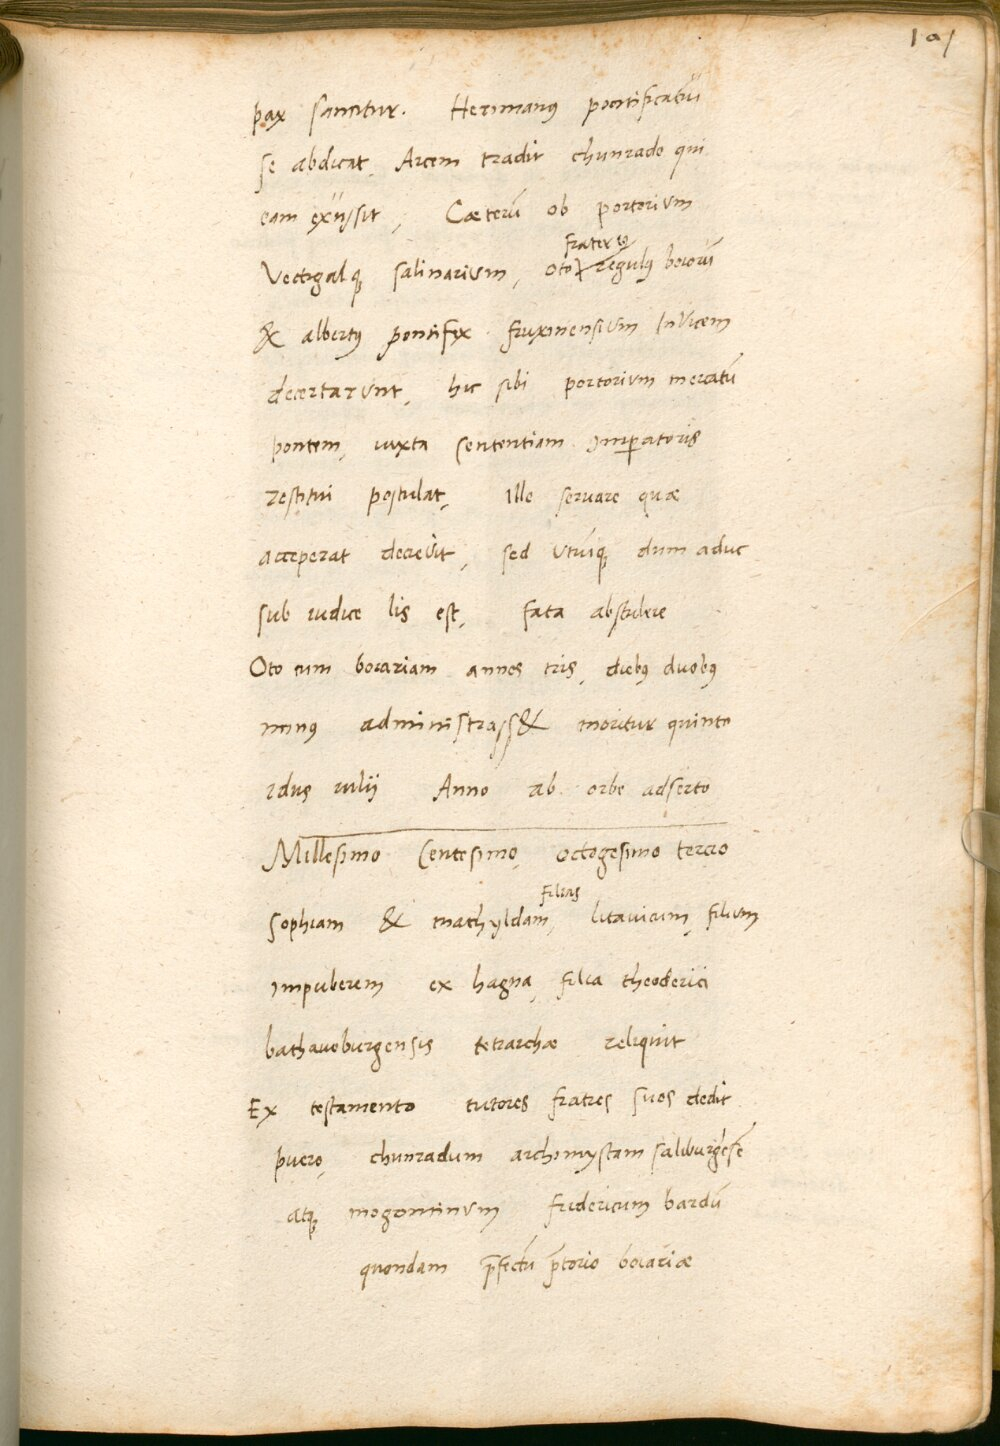 191
pax sancitur. Herimanus pontificatū
se abdicat, Arcem tradit chunrado qui
eam exussit, Cæterū ob portorium
frater &
Vectigalq; salinarium, oto regulus boiorū
& albertus pontifex fruxinensium Invicem
decertarunt, hic sibi portorium mercatū
pontem, iuxta sententiam imperatoris
restitui postulat, Ille servare quæ
acceperat decrevit, sed utrūq; dum aduc
sub iudice lis est, fata abstulere
Oto cum boiariam annos tris, diebus duobus
minus administrass& moritur quinto
idus iulij Anno ab orbe adserto
Millesimo Centesimo, octogesimo tercio
filias
sophiam & mathyldam, litavicum, filium
impuberem ex hagna, filia theoderici
bathavoburgensis tetrarchæ reliquit
Ex testamento tutores fratres suos dedit
puero, chunradum archimystam saliburgēsē
atq; mogontinum fridericum bardū
quondam p̄fectū p̄torio boiariæ